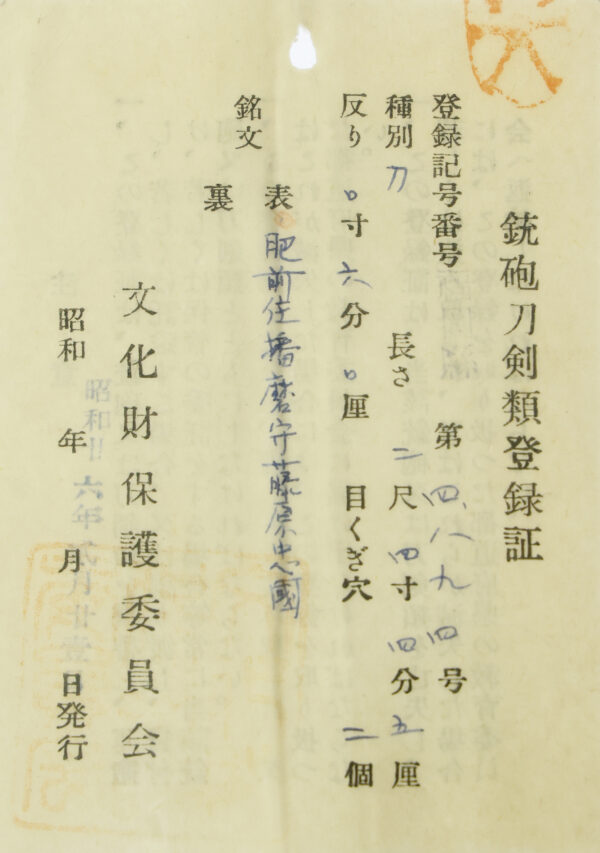 銃砲刀剣類登録証
登録記号番号 第四、八九四号
種別 刀 長さ 二尺四寸四分五厘
反り 〇寸六分〇厘 目くぎ穴 二個
銘文 表 肥前住播磨守藤原忠國
裏
文化財保護委員会
昭和 年 月 日発行
昭和廿六年弐月廿壹